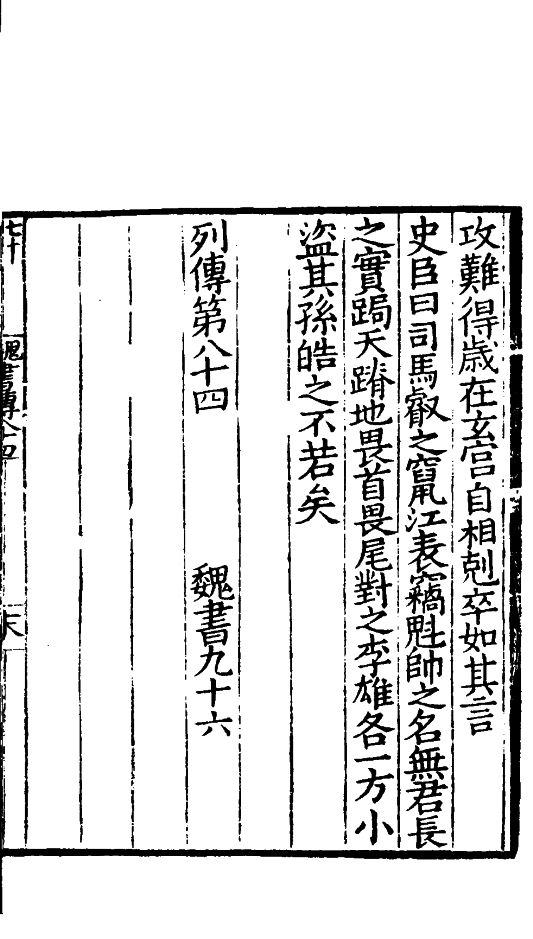 攻難得歲在玄宮自相剋卒如其言
史臣曰司馬叡之竄江表竊魁帥之名無君長
之實跼天蹐地畏首畏尾對之李雄各一方小
盜其孫皓之不若矣
列傳第八十四　魏書九十六
七十
魏書傳八十四